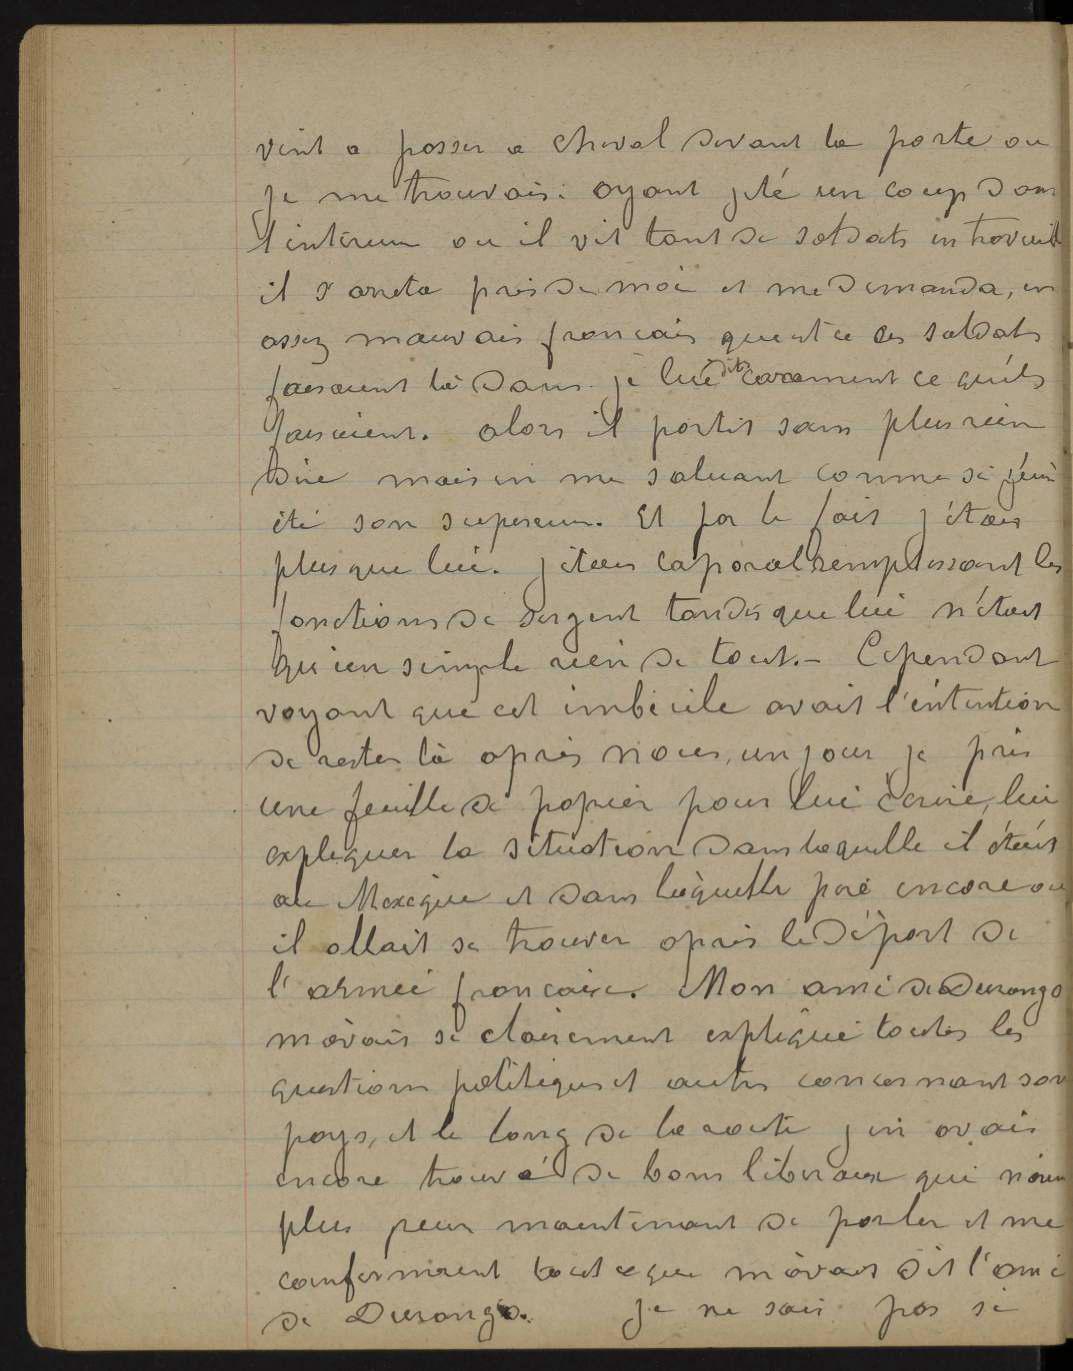 vint a passer a cheval devant la porte ou
je me trouvais. ayant jeté un coup dans
l'intérieur ou il vit tant de soldats en travail
il s'arreta près de moi et me demanda, en
assez mauvais français quest ce ces soldats
faisaient là dans. je lui dits carrement ce qu'ils
faisaient. alors il partit sans plus rien
dire mais en me saluant comme si j'eus
été son superieur. Et par le fait j'étais
plus que lui. j'étais caporal remplissant les
fonctions de sergent tandis que lui n'était
qu'un simple rien de tout. — Cependant
voyant que cet imbécile avait l'intention
de rester là après nous, un jour je pris
une feuille de papier pour lui écrire, lui
expliquer la situation dans laquelle il était
au Mexique et dans laquelle pire encore ou
il allait se trouver après le départ de
l'armée française. Mon ami de Durango
m'avais si clairement expliqué toutes les
questions politiques et autres concernant son
pays, et le long de la route j'en avais
encore trouvé de bons liberaux qui n'avai
plus peur maintenant de parler et me
confirmaient tout ce que m'avait dit l'ami
de Durango. Je ne sais pas si